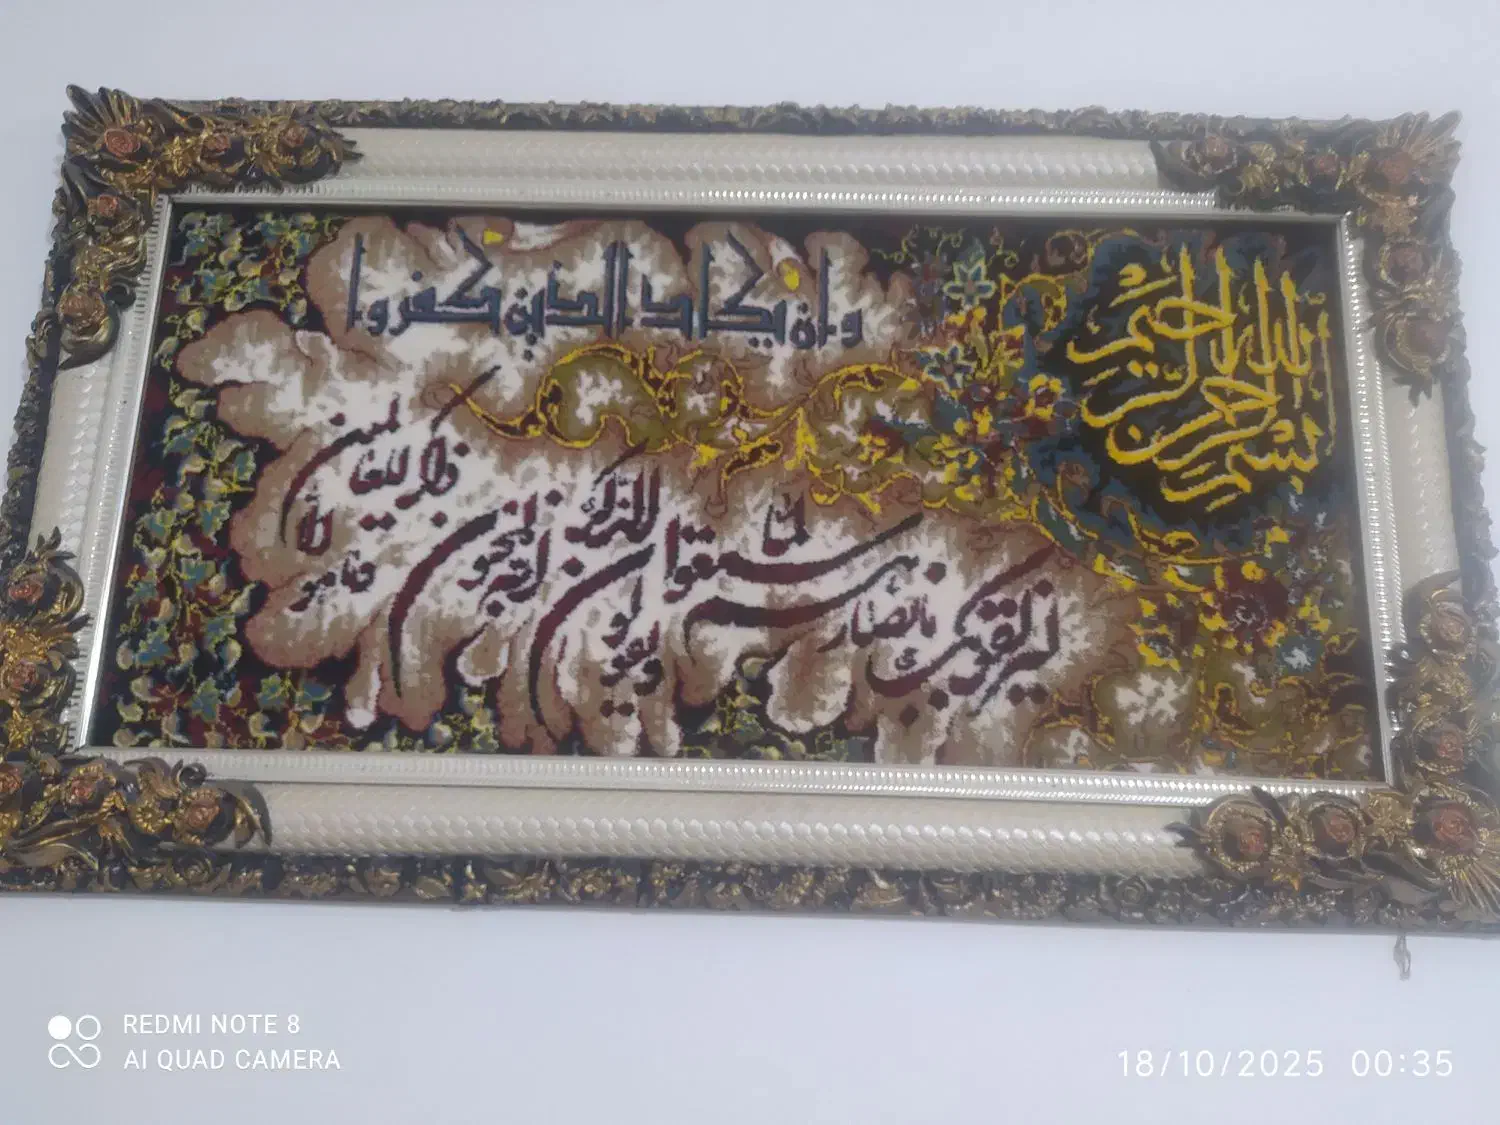 بسم الله الرحمن الرحيم
وان يكاد الذين كفروا
ليزلقونك بابصارهم لما سمعوا الذكر ويقولون انه لمجنون
وما هو الا ذكر للعالمين
REDMI NOTE 8
AI QUAD CAMERA
18/10/2025 00:35